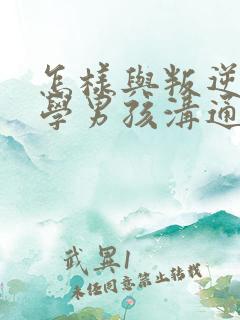 怎樣與叛逆
學男孩溝通
武異1
未经同意禁止转载